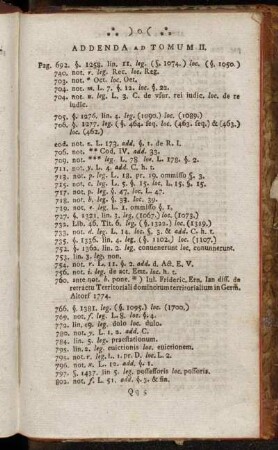 ) o (
ADDENDA AD TOMUM II.
Pag. 692. §. 1258. lin. 11. leg. (§. 1074.) loc. (§. 1050.)
740. not. r. leg. Rec. loc. Reg.
703. not. * Oct. loc. Oet.
704. not. m. L. 7. §. 12. loc. §. 22.
704. not. n. leg. L. 3. C. de vsur. rei iudic. loc. de re
iudic.
705. §. 1276. lin. 4. leg. (1090.) loc. (1089.)
706. §. 1277. leg. (§. 464. seq. loc. (463. seq.) & (463.)
loc. (462.)
eod. not. z. L. 173. add. §. 1. de R. I.
706. not. ** Cod. IV. add. 33.
709. not. *** leg. L. 78. loc. L. 178. §. 2.
711. not. y. L. 4. add. C. h. t.
713. not. p. leg. L. 13. pr. 19. omnisso §. 3.
715. not. c. leg. L. 5. §. 15. loc. L. 15. §. 15.
717. not. p. leg. §. 47. loc. L. 47.
718. not. b. leg. §. 37. loc. 39.
719. not. e. leg. L. 1. omnisso §. 1.
717. §. 1321. lin. 3. leg. (1067.) loc. (1073.)
732. Lib. 46. Tit. 6. leg. (§. 1322.) loc. (1319.)
733. not. d. leg. L. 14. leg. §. 3. & add. C. h. t.
735. §. 1336. lin. 4. leg. (§. 1102.) loc. (1107.)
752. §. 1362. lin. 2. leg. conuenerunt loc, conuunerunt.
753. lin. 3. leg. non.
754. not. r. L. 11. §. 2. add. d. Act. E. V.
756. not. i. leg. de act. Emt. loc. h. t.
760. ante not. b. pone. * ) Inf. Frideric, Ern. Ian diss. de
retractu Territoriali dominorum territorialium in Germ.
Altorf 1774.
766. §. 1381. leg. (§. 1095.) loc. (1700.)
769. not. f. leg. L. 8. loc. §. 4.
772. lin. 19. leg. dolo loc. dulo.
780. not. y. L. 1. 2. add. C.
784. lin. 5. leg. praestationum.
791. §. leg. euictionis loc. euictionem.
791. not. r. leg. L. 1. pr. D. loc. L. 2.
796. not. n. L. 12. add. §. 1.
797. §. 1437. lin 5. leg. possessoris loc. possoris.
802. not. f. L. 51. add. §. 3. & fin.
Qq 5